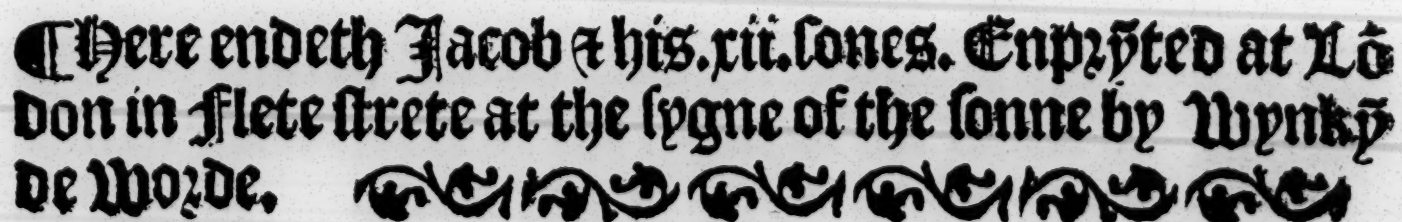 ¶Here endeth Jacob ⁊ his.xii.ſones. Enprỹted at Lõ
don in Flete ſtrete at the ſygne of the ſonne by Wynkỹ
de Worde.